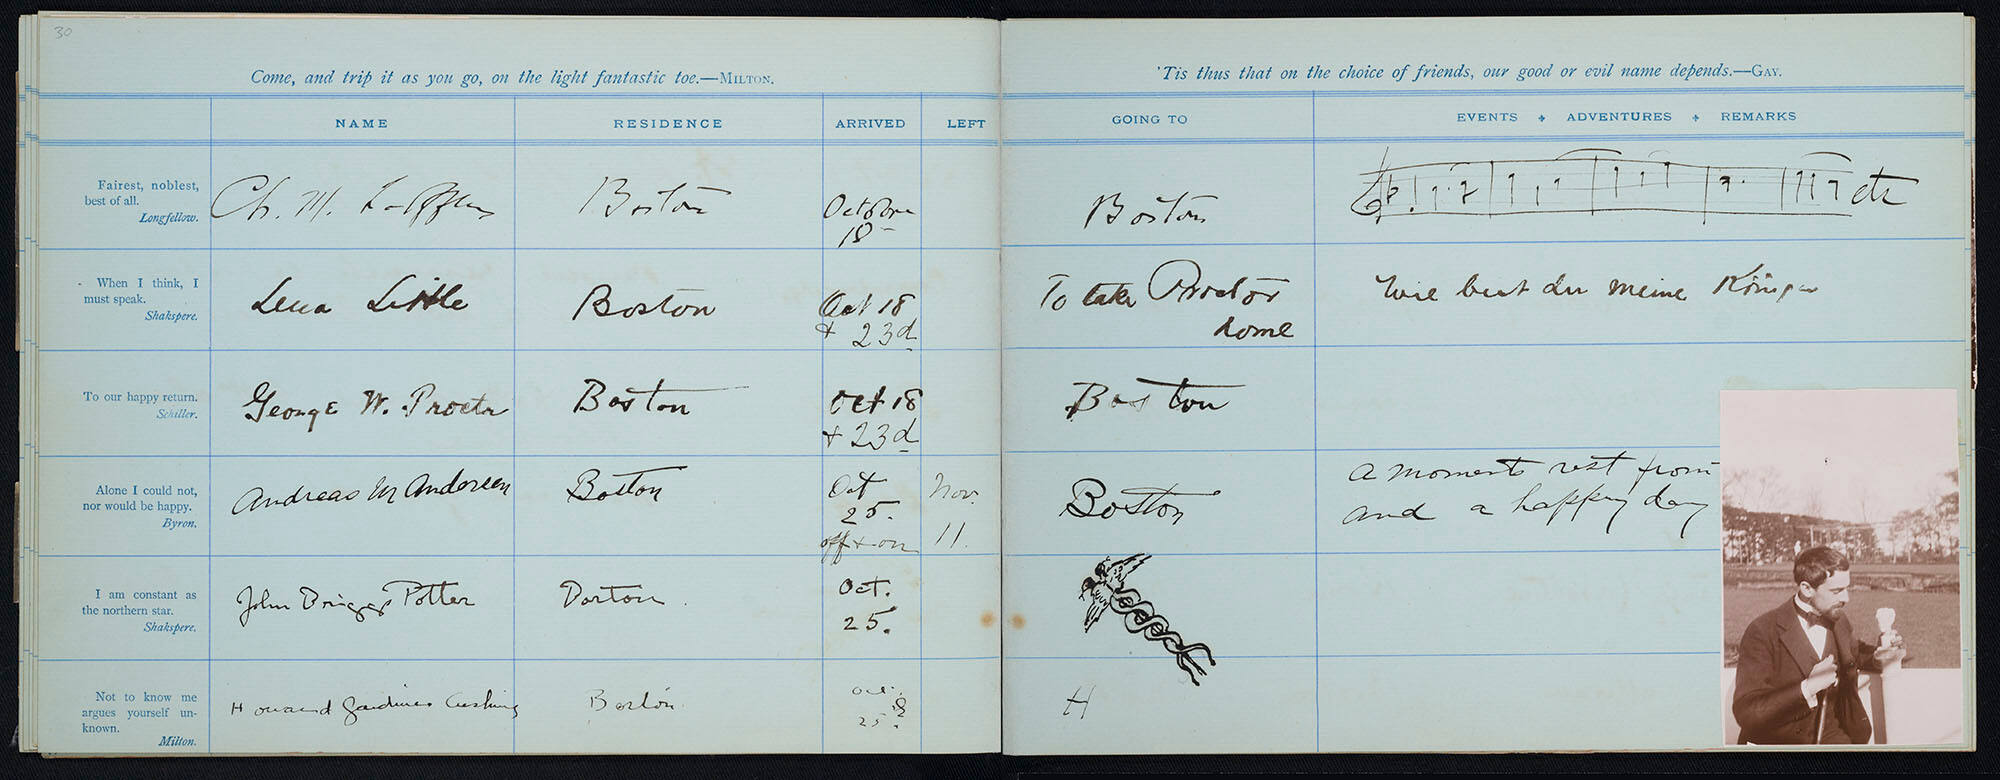 30
Come, and trip it as you go, on the light fantastic toe.—MILTON.
'Tis thus that on the choice of friends, our good or evil name depends.—GAY.
NAME RESIDENCE ARRIVED LEFT GOING TO EVENTS ADVENTURES REMARKS
Fairest, noblest,
best of all.
Longfellow.
Ch. M. Loeffler Boston October
18 Boston etc
When I think, I
must speak.
Shakspere.
Lena Little Boston Oct 18
+ 23d To take Proctor
home Wie bist du meine Königin
To our happy return.
Schiller.
George W. Proctor Boston Oct 18
+ 23d Boston
Alone I could not,
nor would be happy.
Byron.
Andreas M Andersen Boston Oct
25.
off + on Nov.
11. Boston a moments rest from
and a happy day
I am constant as
the northern star.
Shakspere.
John Briggs Potter Boston Oct.
25.
Not to know me
argues yourself un-
known.
Milton.
Howard Gardiner Cushing Boston Oct.
25 H